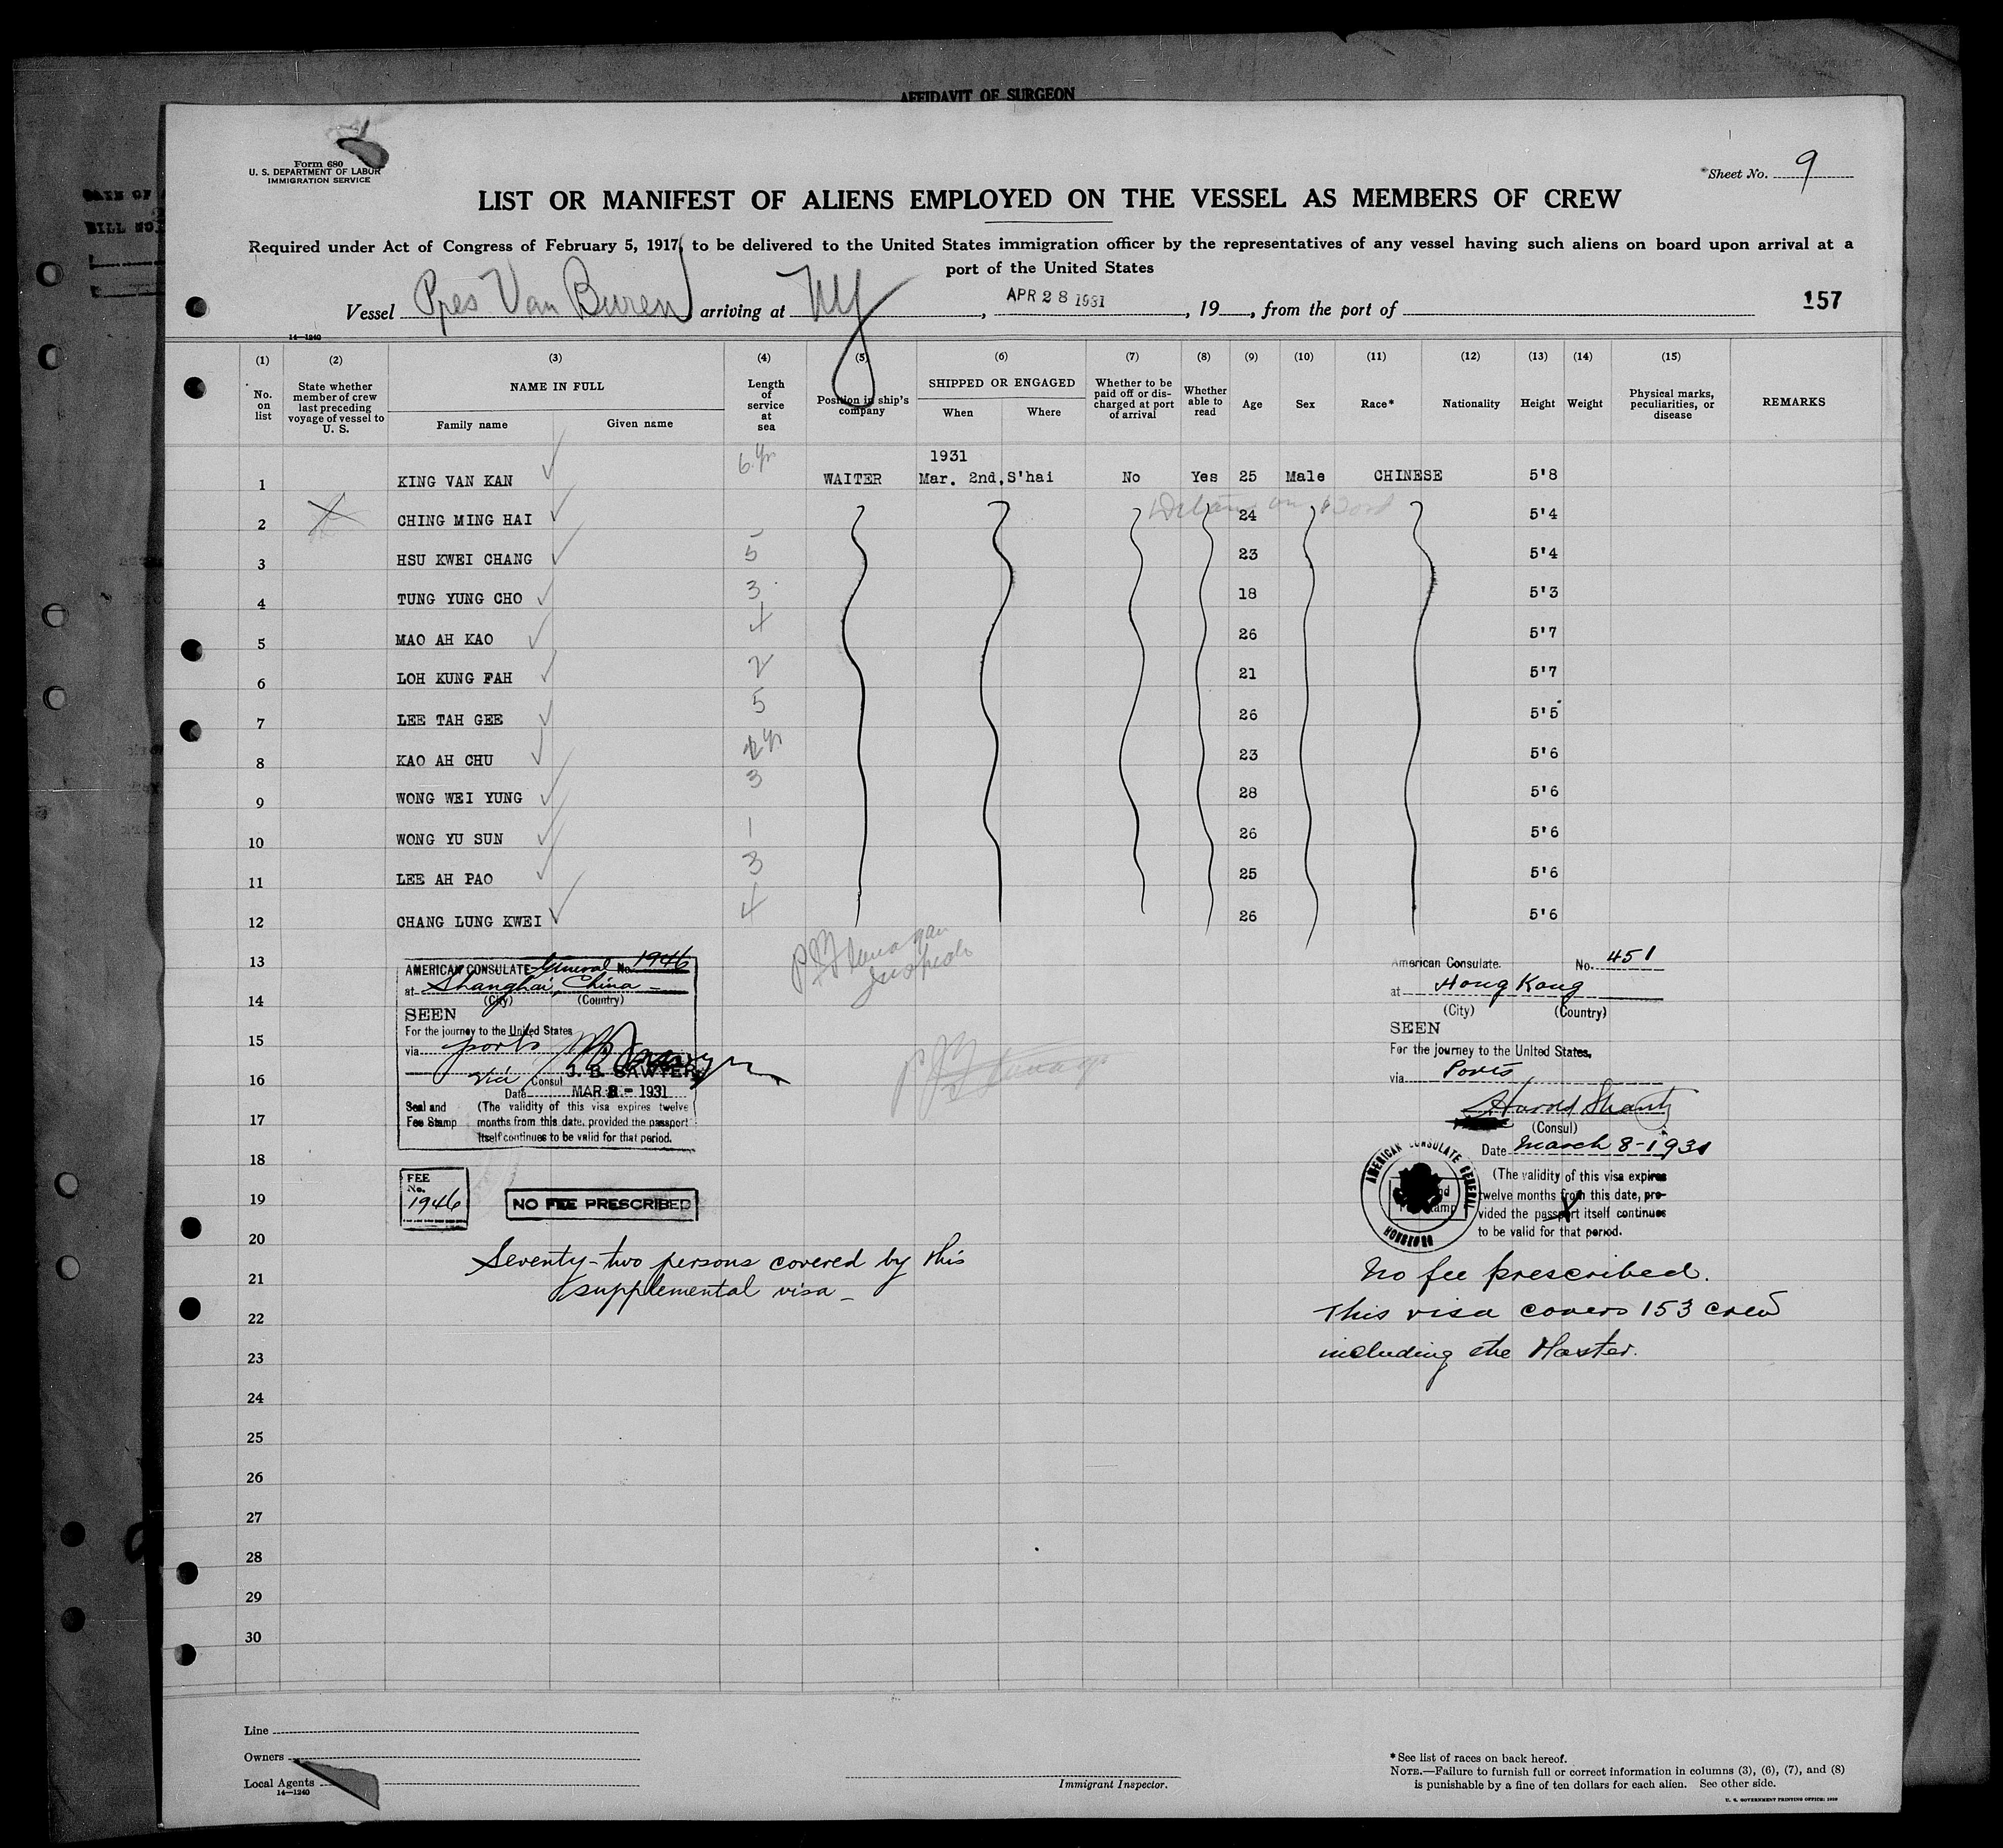 AFFIDAVIT OF SURGEON
Form 680
U. S. DEPARTMENT OF LABOR
IMMIGRATION SERVICE
Sheet No. 9
LIST OR MANIFEST OF ALIENS EMPLOYED ON THE VESSEL AS MEMBERS OF CREW
Required under Act of Congress of February 5, 1917, to be delivered to the United States immigration officer by the representatives of any vessel having such aliens on board upon arrival at a
port of the United States
Vessel Pres Van Buren arriving at NY, APR 28 1931, 19__, from the port of
157
14—1240
(1) (2) (3) (4) (5) (6) (7) (8) (9) (10) (11) (12) (13) (14) (15)
No. on list
State whether member of crew last preceding voyage of vessel to U. S.
NAME IN FULL
Family name Given name
Length of service at sea
Position in ship's company
SHIPPED OR ENGAGED
When Where
Whether to be paid off or discharged at port of arrival
Whether able to read
Age Sex Race* Nationality Height Weight
Physical marks, peculiarities, or disease
REMARKS
1931
1 KING VAN KAN 6 yr WAITER Mar. 2nd, S'hai No Yes 25 Male CHINESE 5'8
2 CHING MING HAI 24 5'4
3 HSU KWEI CHANG 5 23 5'4
4 TUNG YUNG CHO 3 18 5'3
5 MAO AH KAO 4 26 5'7
6 LOH KUNG FAH 2 21 5'7
7 LEE TAH GEE 5 26 5'5
8 KAO AH CHU 2 yr 23 5'6
9 WONG WEI YUNG 3 28 5'6
10 WONG YU SUN 1 26 5'6
11 LEE AH PAO 3 25 5'6
12 CHANG LUNG KWEI 4 26 5'6
13
14
15
16
17
18
19
20
21
22
23
24
25
26
27
28
29
30
AMERICAN CONSULATE General No. 1946
at Shanghai, China
(City) (Country)
SEEN
For the journey to the United States
via ports
Vice Consul J. B. SAWYER
Date MAR 8 - 1931
Seal and Fee Stamp
(The validity of this visa expires twelve
months from this date, provided the passport
itself continues to be valid for that period.
FEE
No.
1946
NO FEE PRESCRIBED
Seventy-two persons covered by this
supplemental visa
Inspector
American Consulate. No. 451
at Hong Kong
(City) (Country)
SEEN
For the journey to the United States,
via Ports
Harold Shantz
(Consul)
Date March 8-1931
(The validity of this visa expires
twelve months from this date, pro-
vided the passport itself continues
to be valid for that period.
AMERICAN CONSULATE GENERAL
HONGKONG
No fee prescribed.
This visa covers 153 crew
including the Master.
Line
Owners
Local Agents
14—1240
Immigrant Inspector.
*See list of races on back hereof.
NOTE.—Failure to furnish full or correct information in columns (3), (6), (7), and (8)
is punishable by a fine of ten dollars for each alien. See other side.
U. S. GOVERNMENT PRINTING OFFICE: 1930